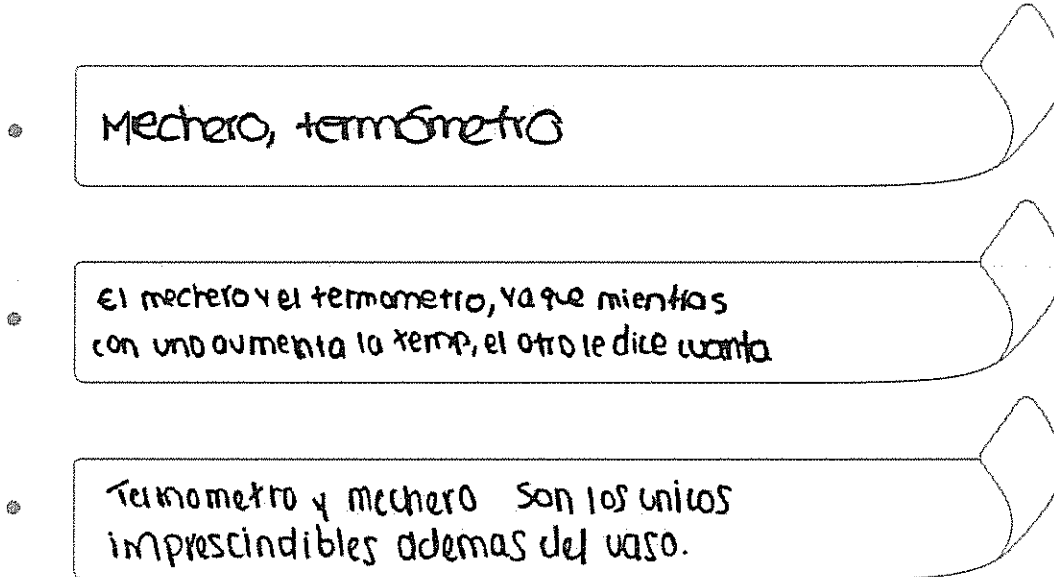 Mechero, termómetro
El mechero y el termometro, ya que mientras
con uno aumenta la temp, el otro le dice cuanta
Termometro y mechero son los unicos
imprescindibles ademas del vaso.